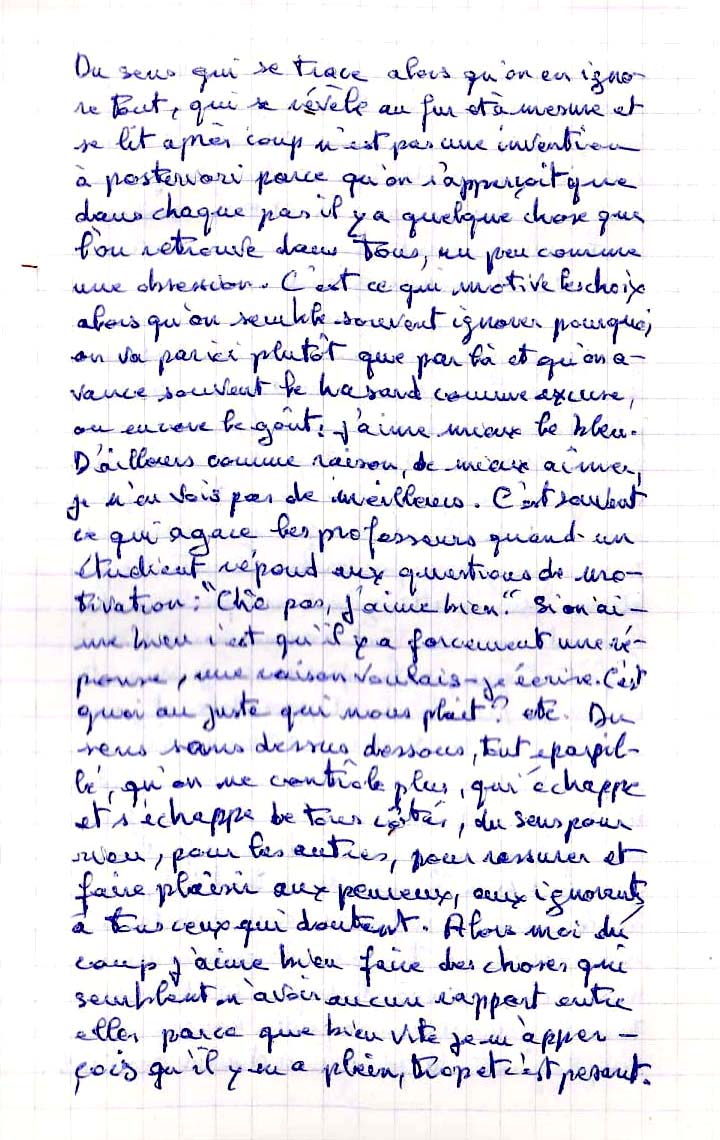 Du sens qui se trace alors qu'on en igno-
re tout, qui se révèle au fur et à mesure et
se lit après coup n'est pas une invention
à posteriori parce qu'on s'apperçoit que
dans chaque pas il y a quelque chose que
l'on retrouve dans tous, un peu comme
une obsession. C'est ce qui motive les choix
alors qu'on semble souvent ignorer pourquoi,
on va par ici plutôt que par là et qu'on a-
vance souvent le hasard comme excuse,
ou encore le goût: j'aime mieux le bleu.
D'ailleurs comme raison, de mieux aimer,
je n'en vois pas de meilleurs. C'est souvent
ce qui agace les professeurs quand un
étudiant répond aux questions de mo-
tivation: "Chè pas, j'aime bien". Si on ai-
me bien c'est qu'il y a forcement une ré-
ponse, une raison voulais-je écrire. C'est
quoi au juste qui nous plait? etc. Du
sens sans dessus dessous, tout eparpil-
lé, qu'on ne contrôle plus, qui échappe
et s'échappe de tous côtés, du sens pour
rien, pour les autres, pour rassurer et
faire plaisir aux peureux, aux ignorants,
à tous ceux qui doutent. Alors moi du
coup j'aime bien faire des choses qui
semblent n'avoir aucun rapport entre
elles parce que bien vite je m'apper-
çois qu'il y en a plein, trop et c'est pesant.